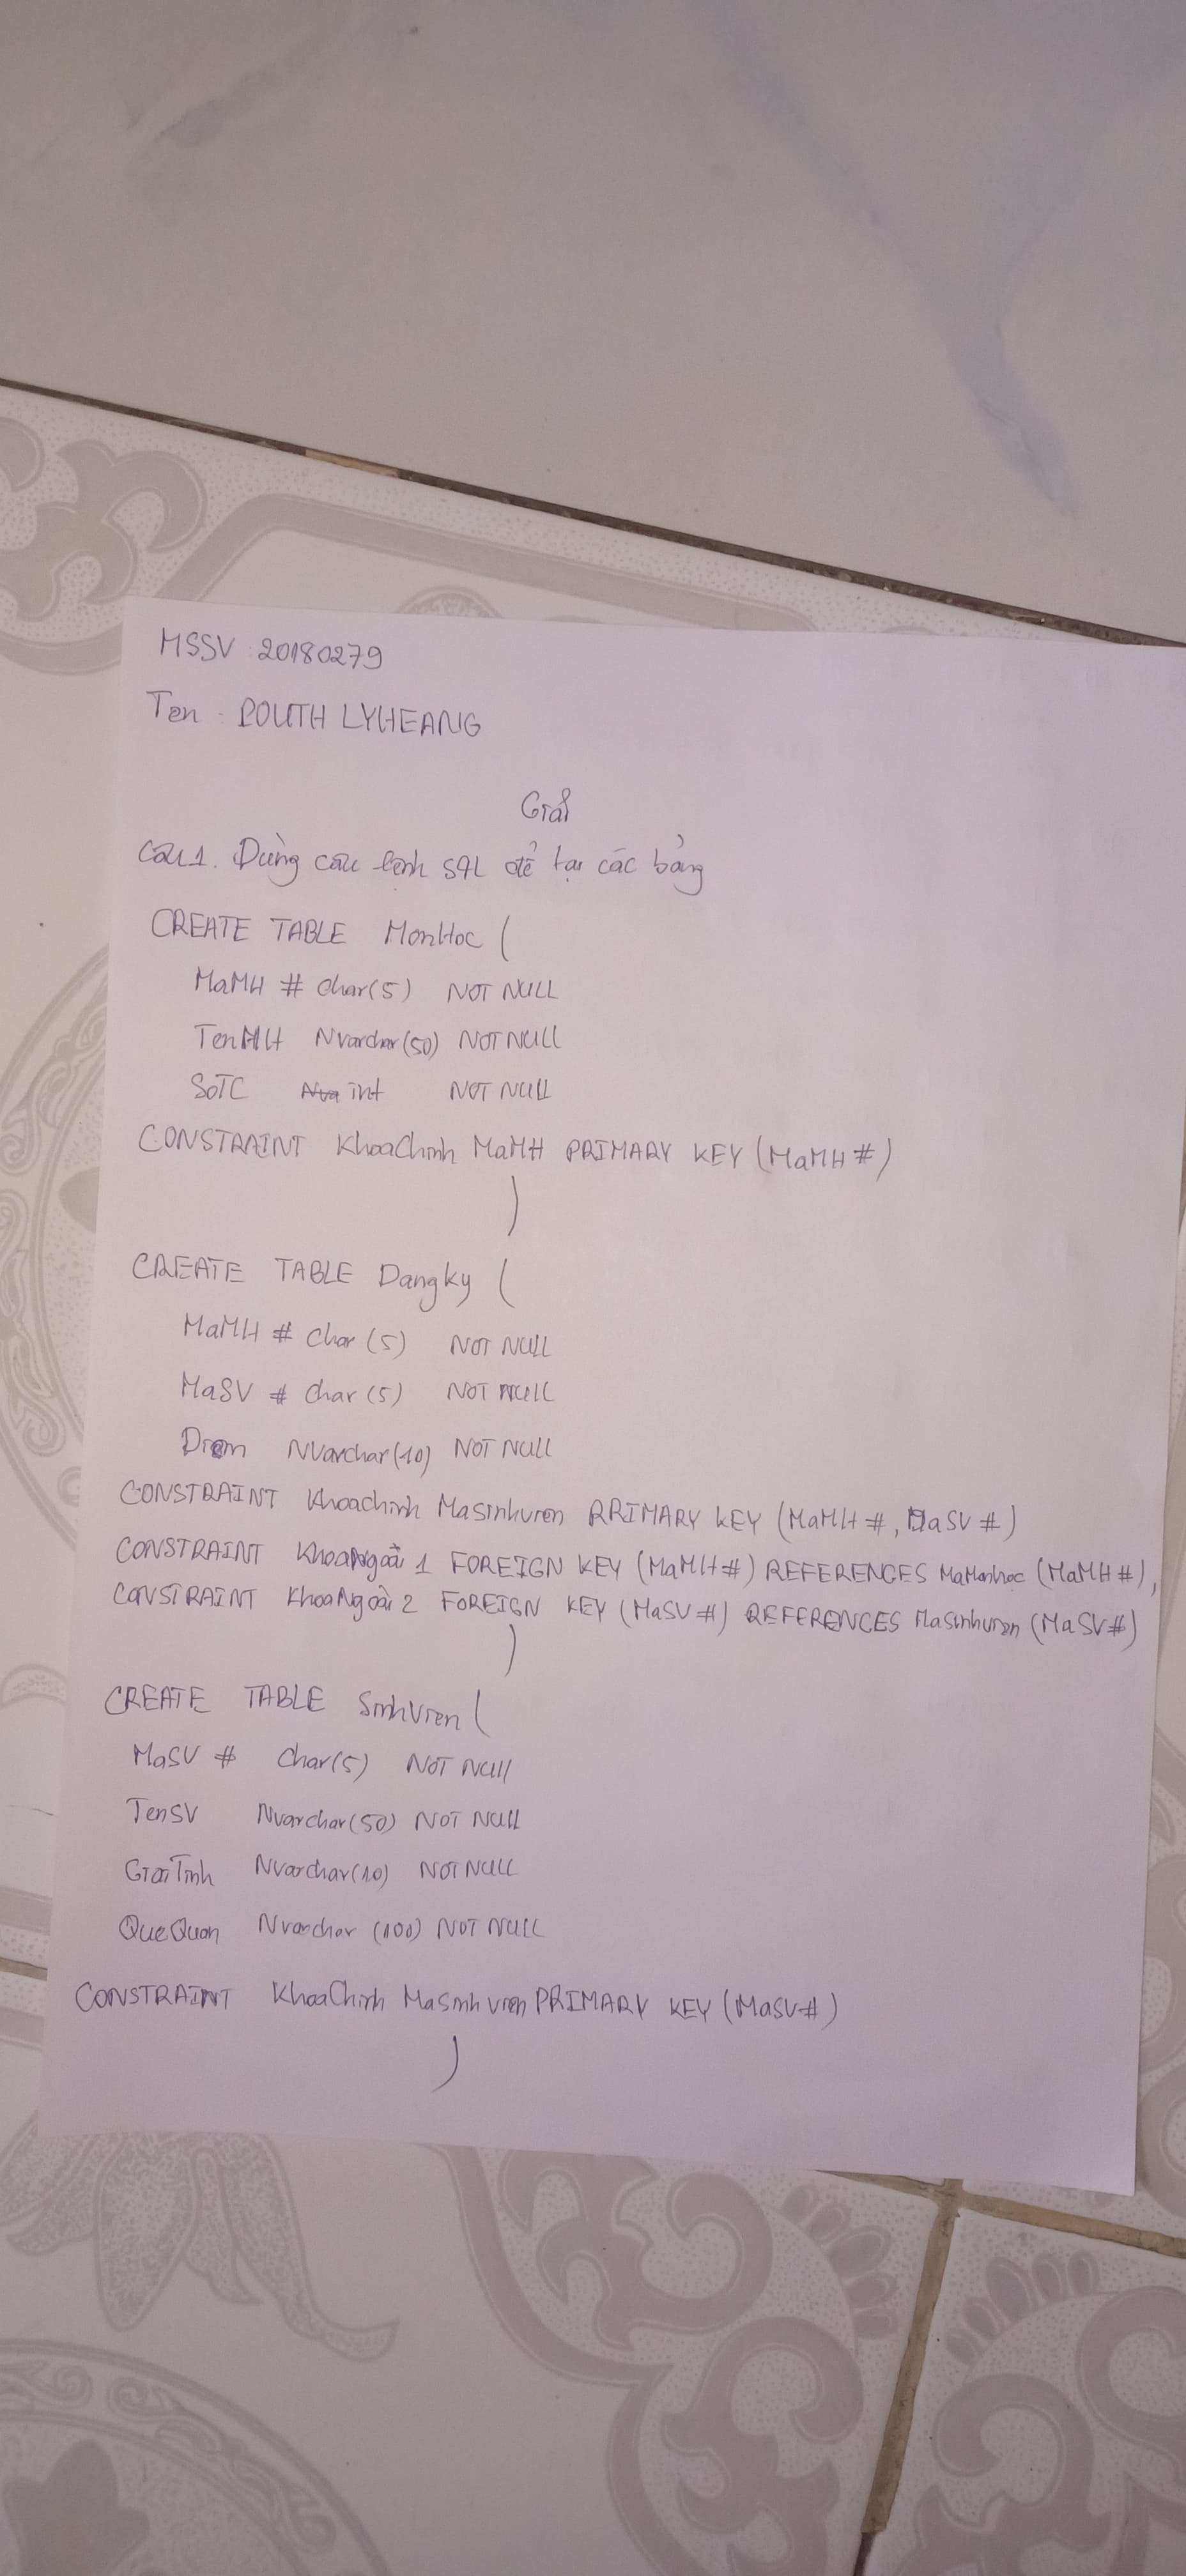 MSSV : 20180279
Ten : POUTH LYHEANG
Giải
Câu 1. Dùng câu lệnh SQL để tạo các bảng
CREATE TABLE MonHoc (
MaMH # char(5) NOT NULL
TenMH Nvarchar(50) NOT NULL
SoTC int NOT NULL
CONSTRAINT KhoaChinh MaMH PRIMARY KEY (MaMH #)
)
CREATE TABLE Dangky (
MaMH # char (5) NOT NULL
MaSV # char (5) NOT NULL
Diem NVarchar(10) NOT NULL
CONSTRAINT Khoachinh Masinhvien PRIMARY KEY (MaMH #, MaSV #)
CONSTRAINT KhoaNgoài 1 FOREIGN KEY (MaMH #) REFERENCES MaMonhoc (MaMH #),
CONSTRAINT KhoaNgoài 2 FOREIGN KEY (MaSV #) REFERENCES Masinhvien (MaSV #)
)
CREATE TABLE Sinhvien (
MaSV # Char(5) NOT NULL
TenSV Nvarchar(50) NOT NULL
GioiTinh Nvarchar(10) NOT NULL
QueQuan Nvarchar (100) NOT NULL
CONSTRAINT KhoaChinh Masinhvien PRIMARY KEY (MaSV #)
)